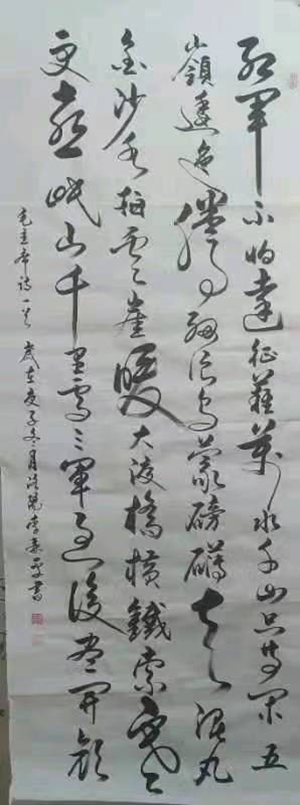 红軍不怕遠征難萬水千山只等闲五
嶺逶迤騰細浪烏蒙磅礴走泥丸
金沙水拍雲崖暖大渡橋横鐵索寒
更喜岷山千里雪三軍過後盡開顔
毛主席诗一首 歲在庚子冬月李書